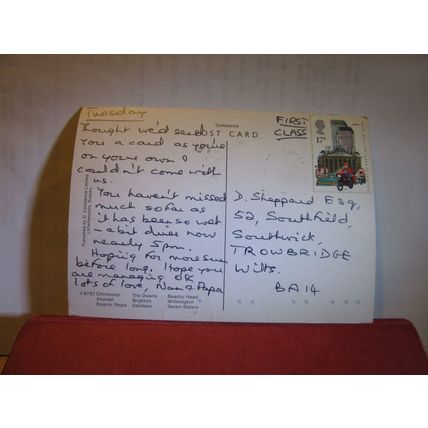 Tuesday
Constance
POST CARD
FIRST
CLASS
17P
Thought we'd send
you a card as you're
on your own &
couldn't come with
us.
You haven't missed
much so far as
it has been so wet
- a bit drier now
nearly 5pm.
Hoping for more sun
before long. I hope you
are managing OK
lots of love, Nan & Papa
D. Sheppard Esq,
52, Southfield,
Southwick,
TROWBRIDGE
Wilts.
BA14
Published by D. Constance Limited
Littlehampton, Sussex
Chichester The Downs Beachy Head
Arundel Brighton Wilmington
Bognor Regis Saltdean Seven Sisters